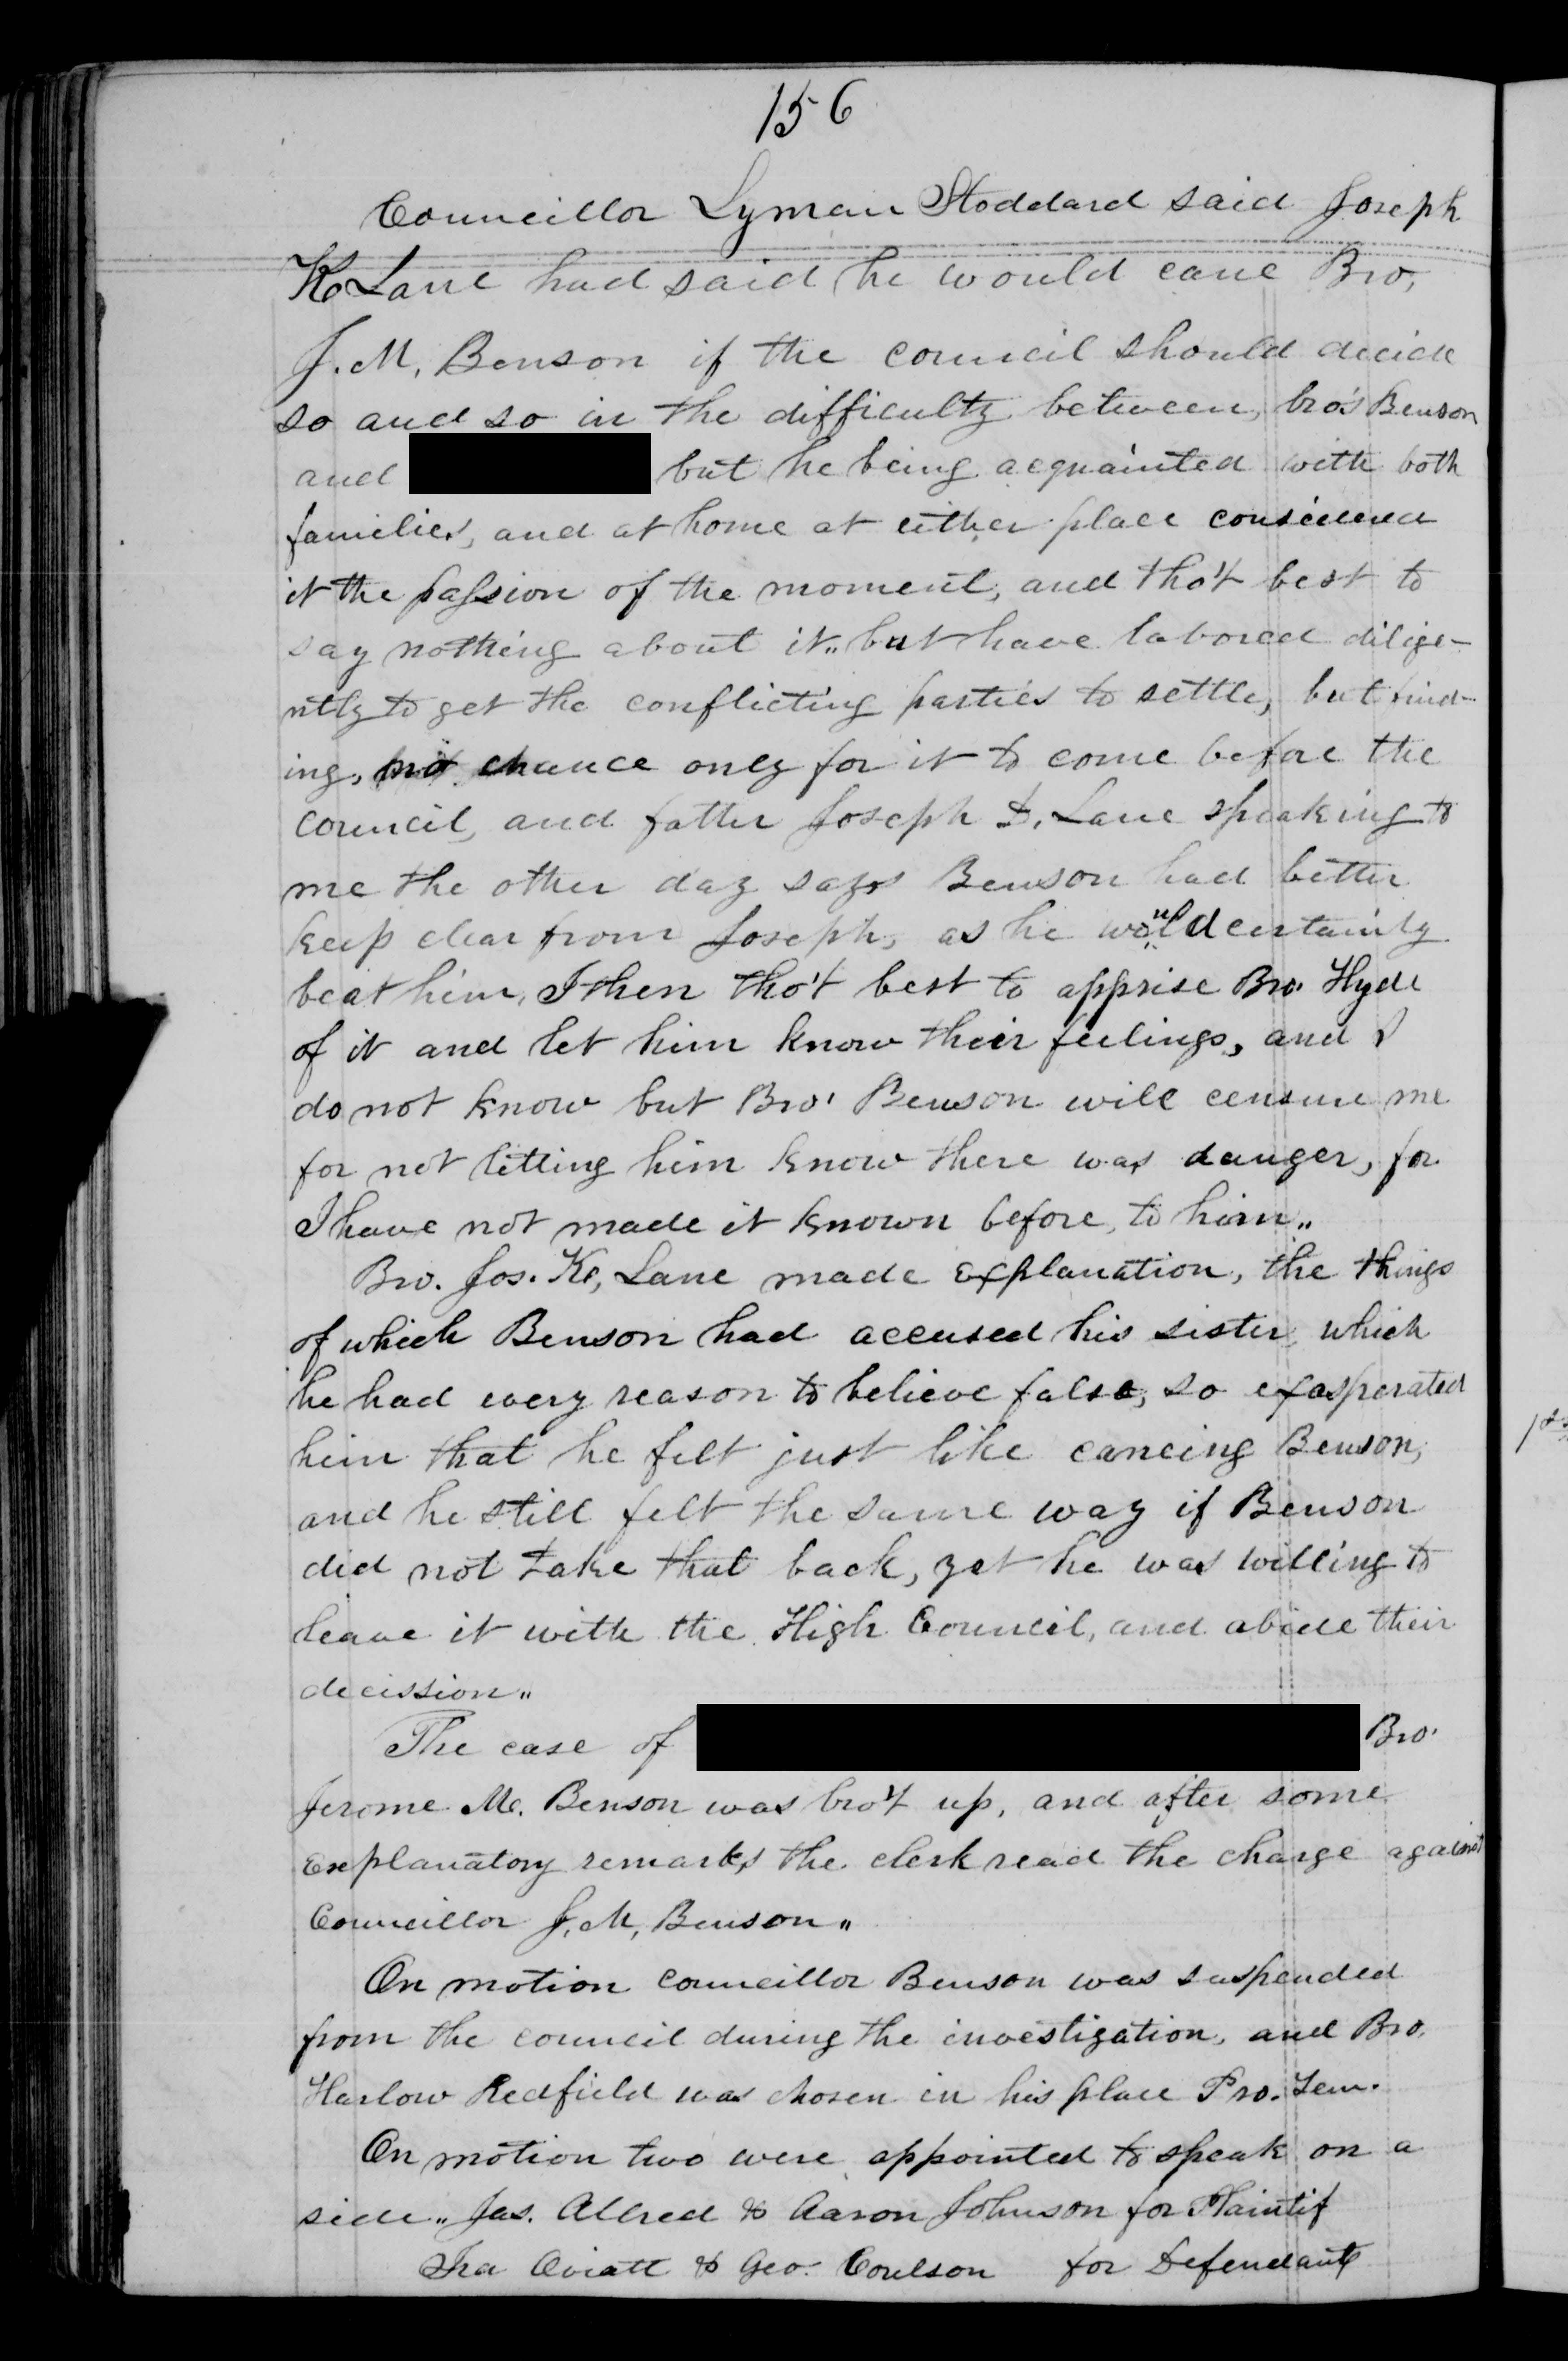 156
Councillor Lyman Stoddard said Joseph
K. Lane had said he would cane Bro,
J. M, Benson if the council should decide
so and so in the difficulty between, bro's Benson
and but he being acquainted with both
families, and at home at either place considered
it the passion of the moment, and tho't best to
say nothing about it„ but have labored dilige-
ntly to get the conflicting parties to settle, but find-
ing, no chance only for it to come before the
council, and father Joseph D. Lane speaking to
me the other day says Benson had better
keep clear from Joseph, as he would certainly
beat him, I then tho't best to apprise Bro. Hyde
of it and let him know their feelings, and I
do not know but Bro' Benson will censure me
for not letting him know there was danger, for
I have not made it known before, to him„
Bro. Jos. K, Lane made explanation, the things
of which Benson had accused his sister, which
he had every reason to believe false, so exasperated
him that he felt just like caneing Benson,
and he still felt the same way if Benson
did not take that back, yet he was willing to
leave it with the High Council, and abide their
decission„
The case of Bro'
Jerome M. Benson was bro't up, and after some
explanatory remarks the clerk read the charge against
Councillor J, M, Benson„
On motion councillor Benson was suspended
from the council during the investigation, and Bro,
Harlow Redfield was chosen in his place Pro. Tem.
On motion two were appointed to speak on a
side„ Jas. Allred & Aaron Johnson for Plaintif
Ira Oviatt & Geo. Coulson for Defendant